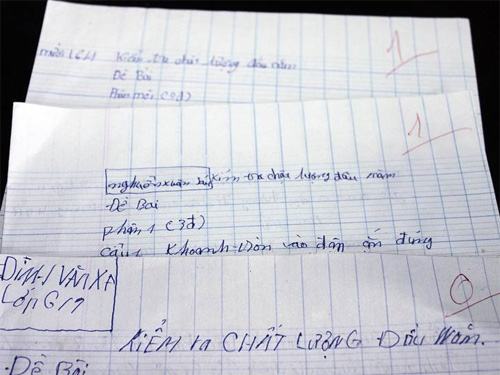 1
Kiểm tra chất lượng đầu năm
Đề Bài
Phần một (3đ)
1
kiểm tra chất lượng đầu năm
Đề Bài
phần 1 (3đ)
câu 1 khoanh tròn vào đáp án đúng
ĐINH VĂN XA
LỚP 6/7
0
KIỂM TRA CHẤT LƯỢNG ĐẦU NĂM.
Đề Bài